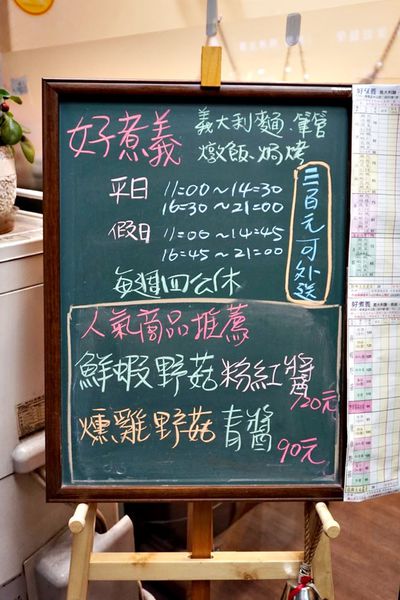 好煮義
義大利麵.筆管
燉飯、焗烤
平日 11:00～14:30
16:30～21:00
假日 11:00～14:45
16:45～21:00
三百元可外送
每週四公休
人氣商品推薦
鮮蝦野菇粉紅醬
120元
燻雞野菇青醬
90元